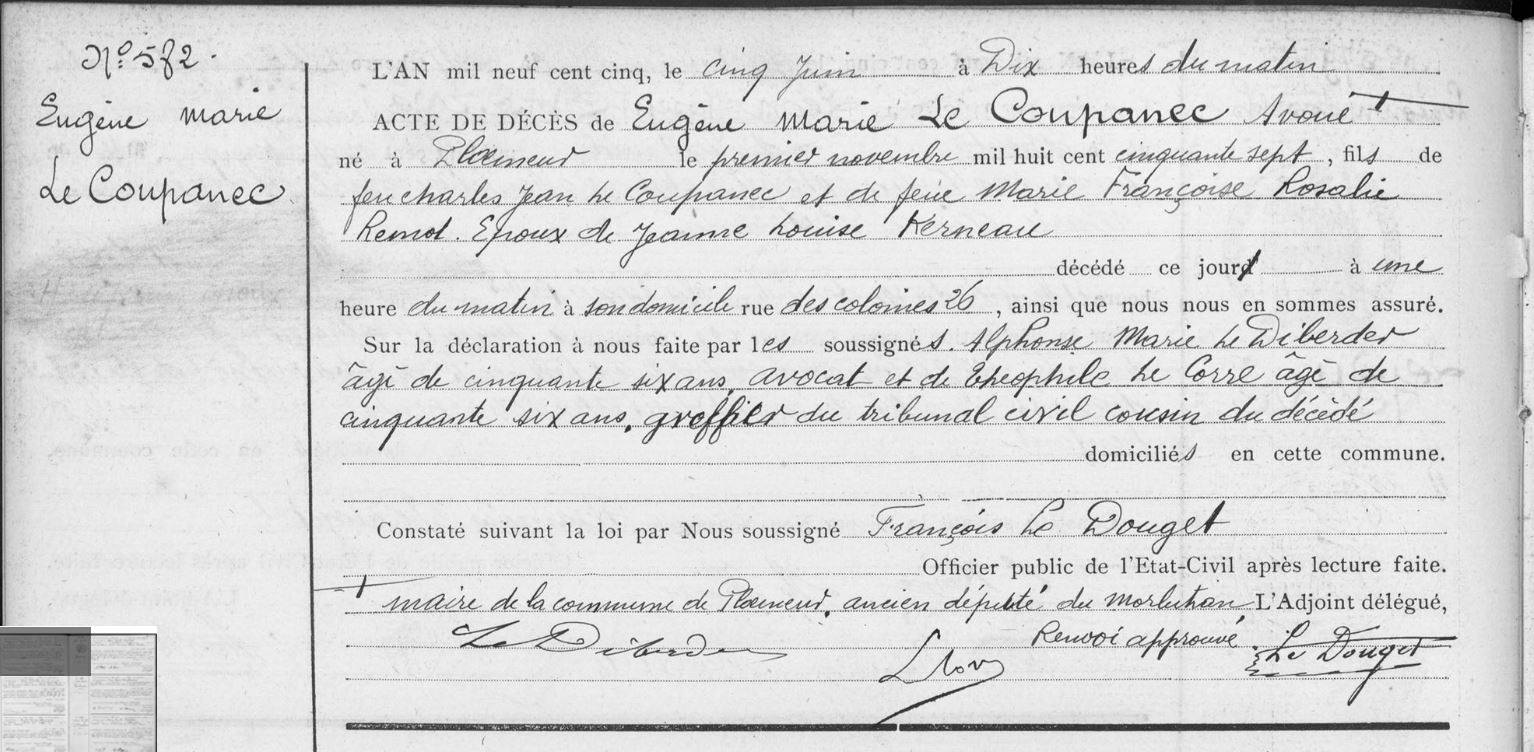 N° 582.
Eugène Marie
Le Coupanec
L'AN mil neuf cent cinq, le cinq Juin à Dix heures du matin
ACTE DE DÉCÈS de Eugène Marie Le Coupanec Avoué +
né à Ploemeur le premier novembre mil huit cent cinquante sept, fils de
feu Charles Jean Le Coupanec et de feue Marie Françoise Rosalie
Remot. Epoux de Jeanne Louise Kerneau
décédé ce jour à une
heure du matin à son domicile rue des colonies 26, ainsi que nous nous en sommes assuré.
Sur la déclaration à nous faite par les soussignés. Alphonse Marie Le Diberder
âgé de cinquante six ans, avocat et de Théophile Le Corre âgé de
cinquante six ans, greffier du tribunal civil cousin du décédé
domiciliés en cette commune.
Constaté suivant la loi par Nous soussigné François Le Douget
Officier public de l'Etat-Civil après lecture faite.
+ maire de la commune de Ploemeur, ancien député du Morbihan L'Adjoint délégué,
Renvoi approuvé
Le Diberder
Le Douget